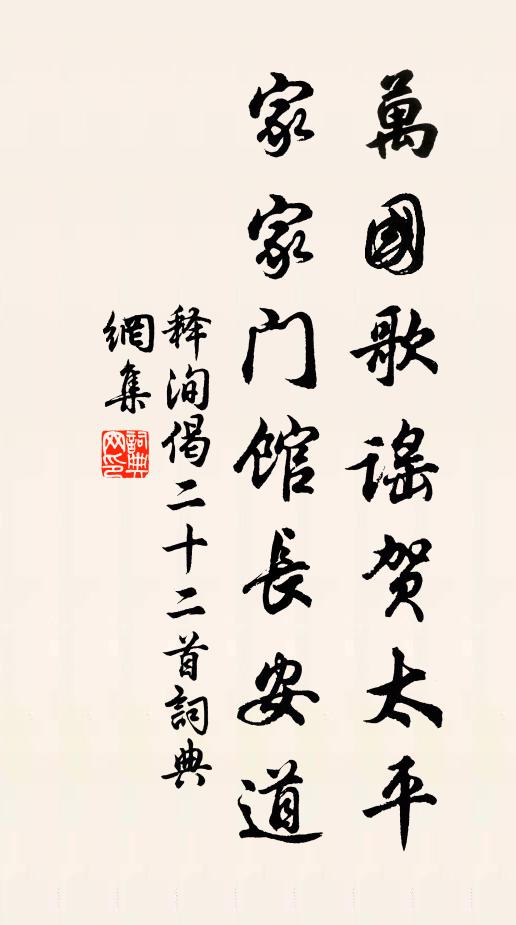 萬國歌谣贺太平
家家门馆長安道
释洵偈二十二首詞典
網集
詞典網印